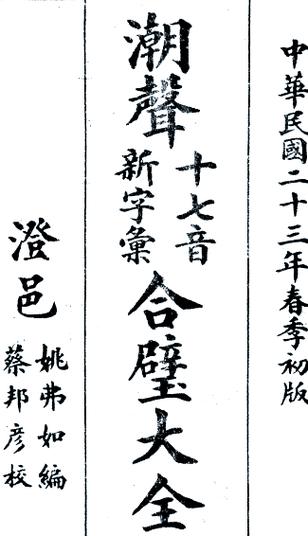 中華民國二十三年春季初版
潮聲十七音新字彙合璧大全
澄邑
姚弗如編
蔡邦彦校